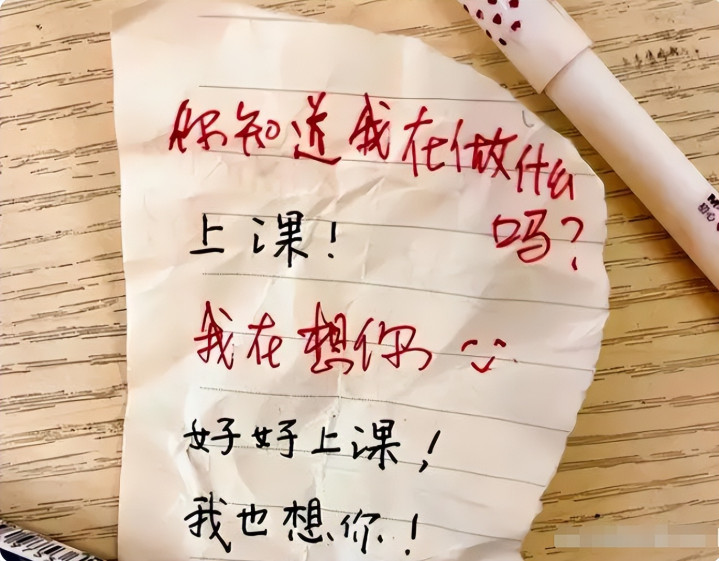 你知道我在做什么
吗?
上课!
我在想你
好好上课!
我也想你!
初心